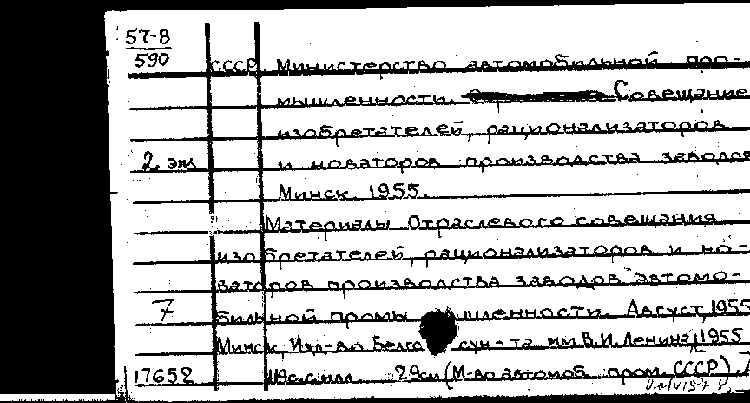 57-8
590
СССР. Министерство автомобильной про-
мышленности. Совещание
изобретателей, рационализаторов
2 эт и новаторов производства заводов
Минск. 1955.
Материалы Отраслевого совещания
изобретателей, рационализаторов и но-
ваторов производства заводов автомо-
7 бильной промышленности. Август, 1955
Минск, Изд-во Белгосун-та им В.И. Ленина, 1955
17652 с илл. 29см (М-во автомоб. пром. СССР).